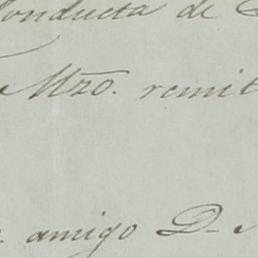 conducta de
Mzo. remit
amigo D-